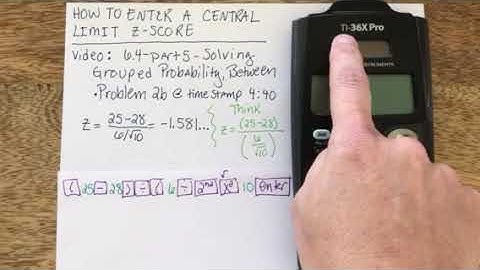 HOW TO ENTER A CENTRAL
LIMIT Z-SCORE
Video: 6.4-part 5-Solving
Grouped Probability, Between
• Problem 2b @ time stamp 4:40
z = 25-28 / 6/√10 = -1.581...
Think
z = (25-28) / (6/√10)
( 25 - 28 ) ÷ ( 6 ÷ 2nd x² 10 enter
√
TI-36X Pro